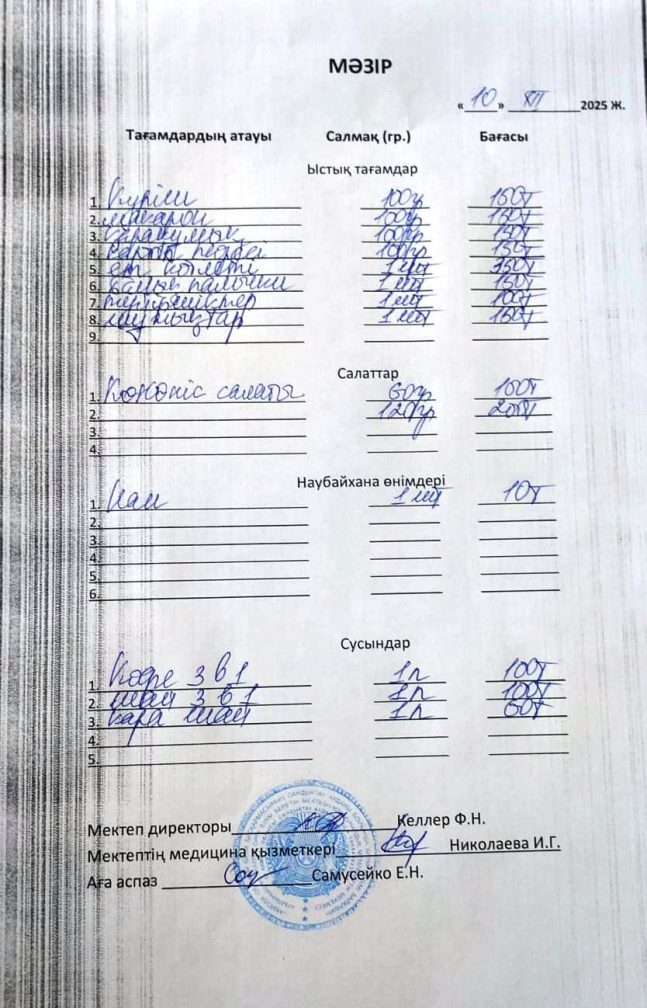 МӘЗІР
«10» XII 2025 Ж.
Тағамдардың атауы Салмақ (гр.) Бағасы
Ыстық тағамдар
1. Күріш 100гр 150т
2. макарон 100гр 150т
3. қарақұмық 100гр 150т
4. картоп пюресі 100гр 150т
5. ет котлеті 1 шт 350т
6. балық палочки 1 шт 150т
7. 1 шт 100т
8. шұжықтар 1 шт 150т
9.
Салаттар
1. Көкөніс салаты 60гр 100т
2. 120гр 200т
3.
4.
Наубайхана өнімдері
1. Нан 1 шт 10т
2.
3.
4.
5.
6.
Сусындар
1. Кофе 3 в 1 1п 100т
2. шай 3 в 1 1п 100т
3. қара шай 1п 60т
4.
5.
Мектеп директоры Келлер Ф.Н.
Мектептің медицина қызметкері Николаева И.Г.
Аға аспаз Самусейко Е.Н.